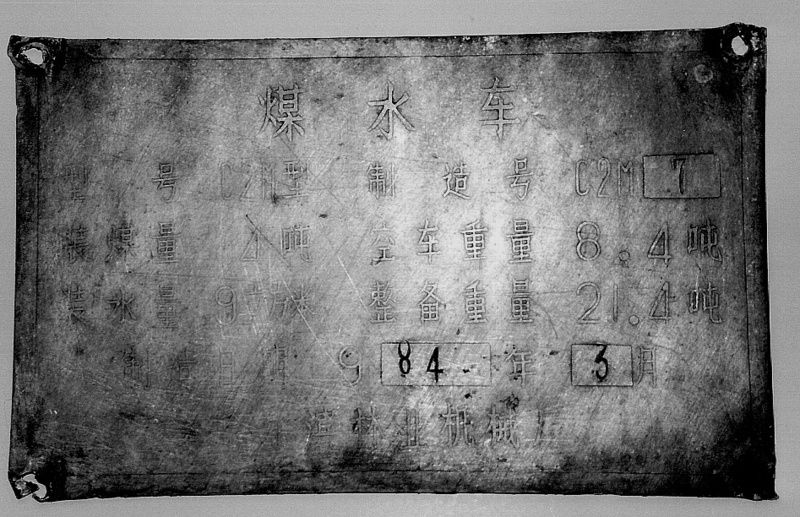 煤水车
型号 C2M型 制造号 C2M 7
装煤量 4吨 空车重量 8.4吨
装水量 9 整备重量 21.4吨
制造日期 984年3月
林业机械厂